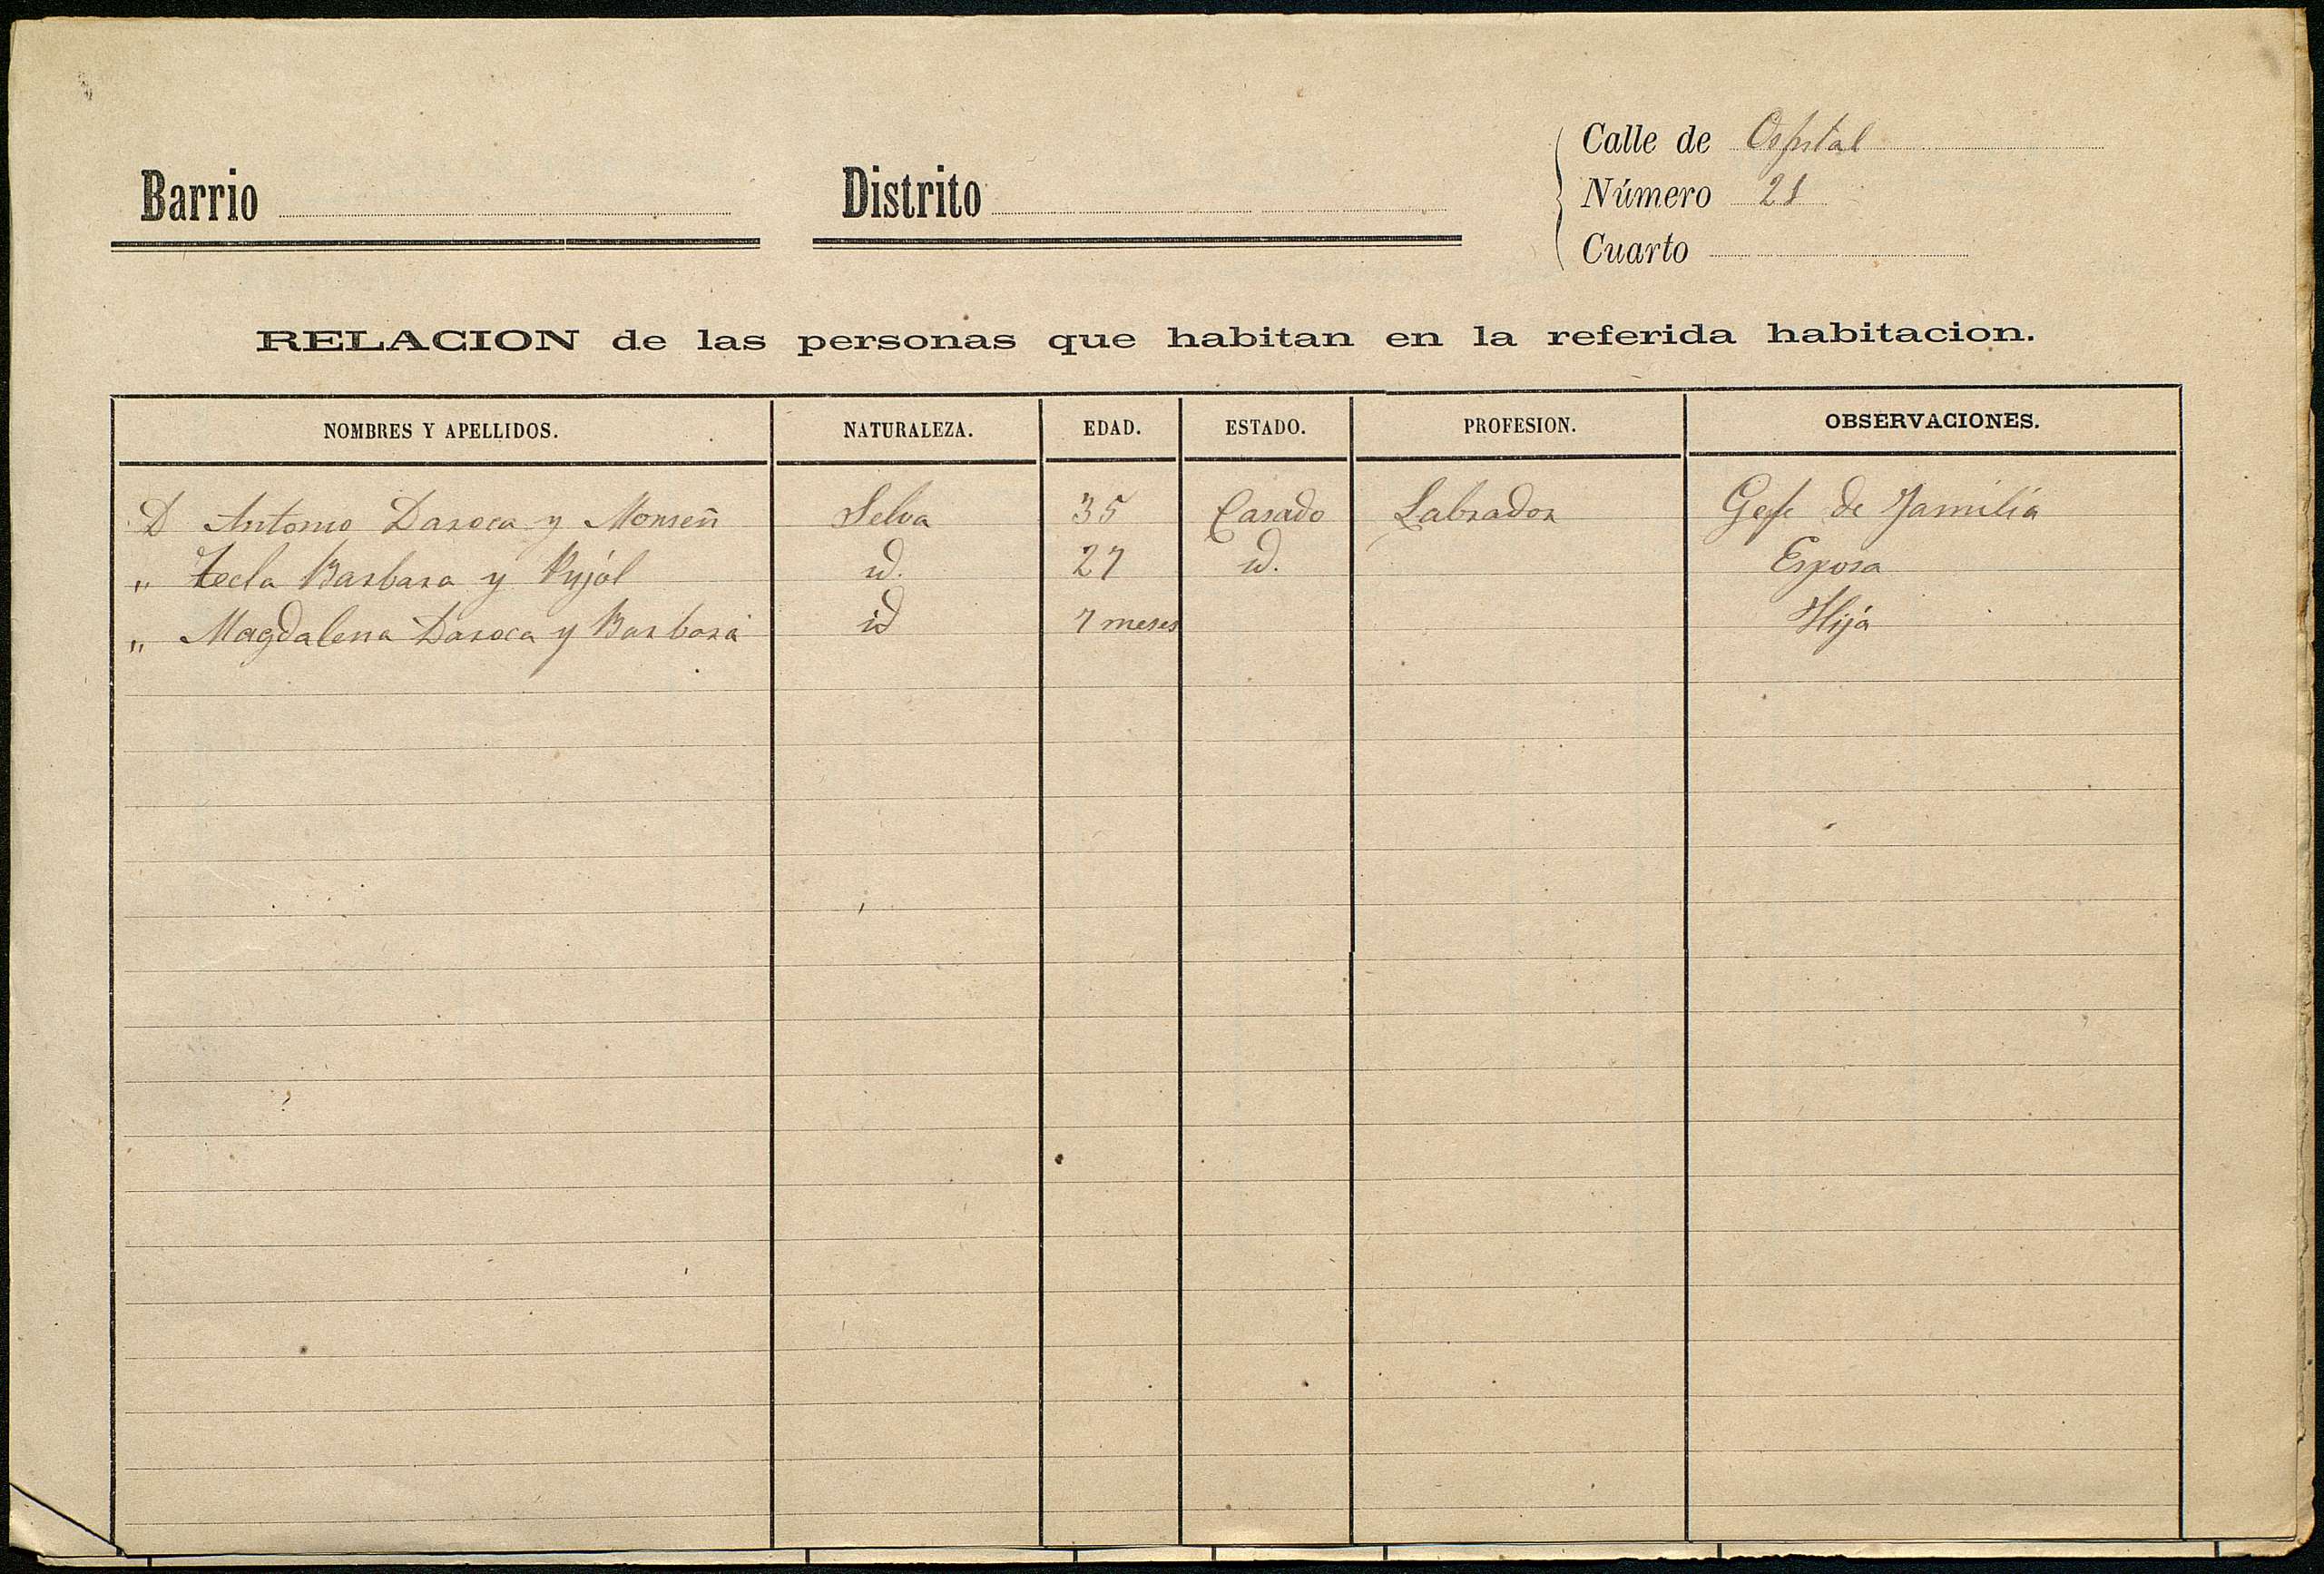 Calle de Ospital
Barrio Distrito Número 21
Cuarto
RELACION de las personas que habitan en la referida habitacion.
NOMBRES Y APELLIDOS. NATURALEZA. EDAD. ESTADO. PROFESION. OBSERVACIONES.
D Antonio Daroca y Monseñ Selva 35 Casado Labrador Gefe de Familia
" Tecla Barbara y Pujól id. 27 id. Esposa
" Magdalena Daroca y Barbara id 7 meses Hija